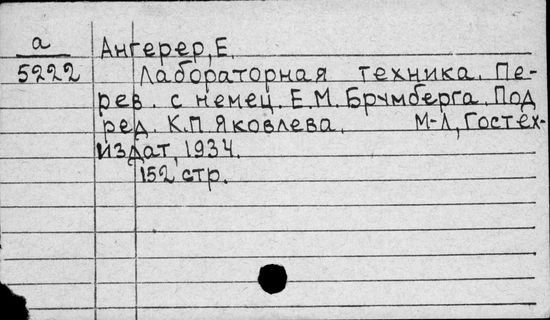 а Ангерер, Е.
5222 Лабораторная техника. Пе-
рев. с немец. Е.М. Брумберга. Под
ред. К.П. Яковлева. М-Л, Гостех-
издат, 1934.
152 стр.